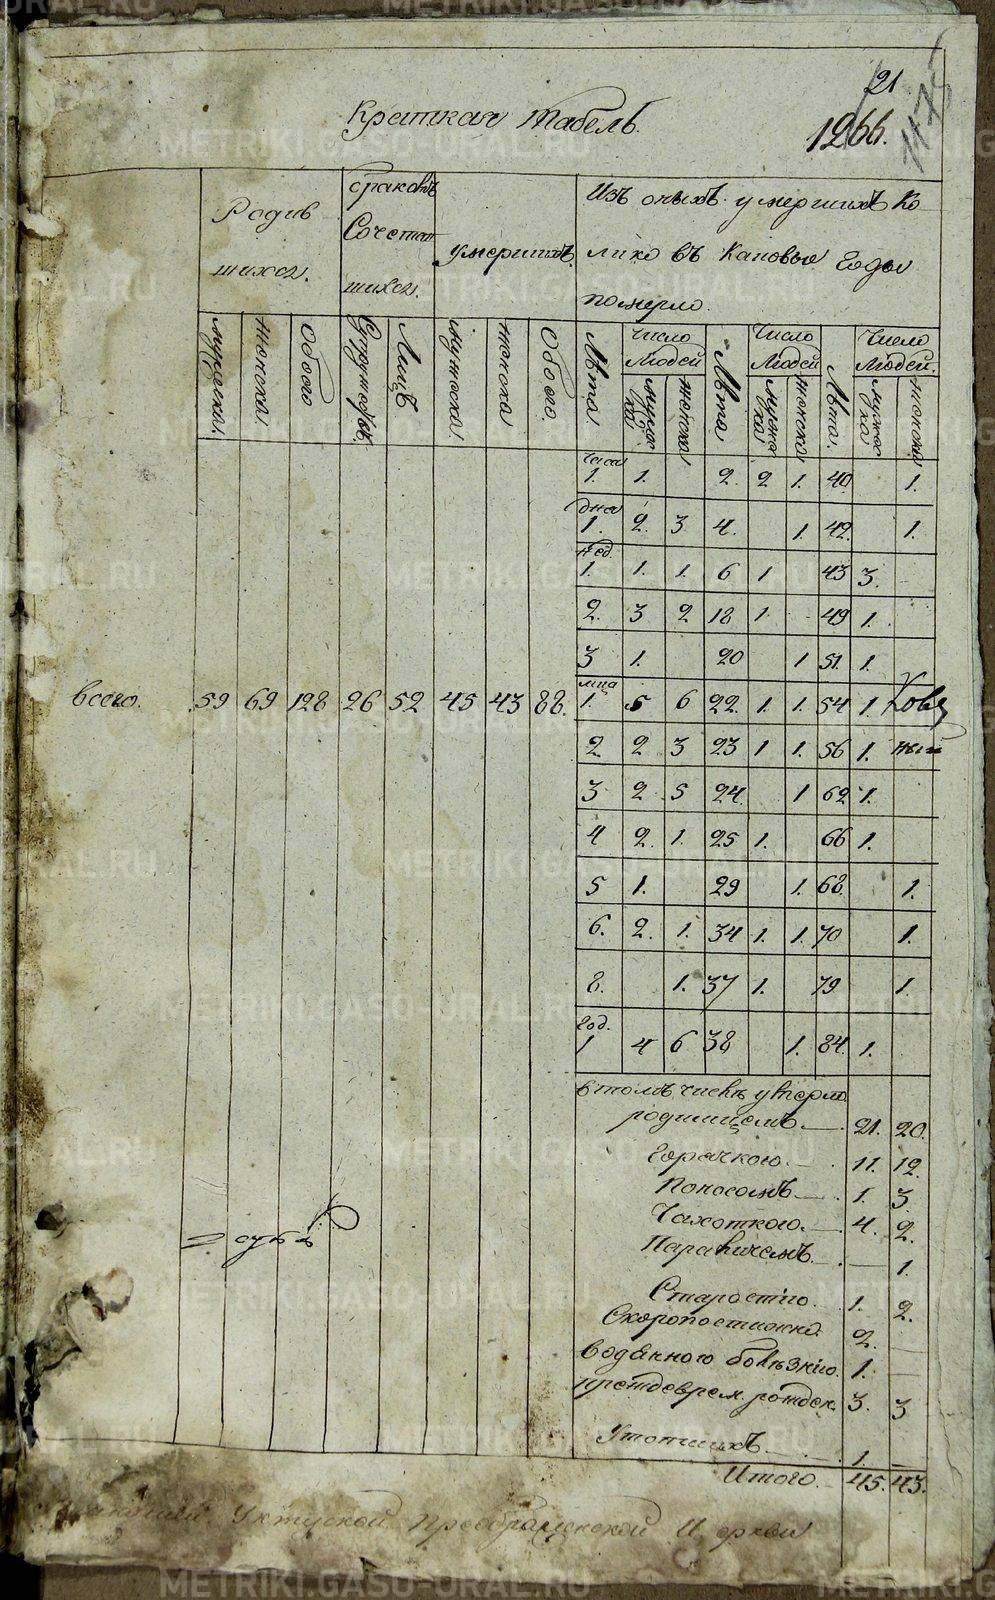 21
1266.
1175
Краткая табель.
Родив
шихся.
браковъ
Сочетав
шихся.
умершихъ.
Изъ оныхъ умершихъ ко
лико въ каковые годы
померло.
мужеска. женска обоего Супружес. Лицъ мужеска женска обоего. Лѣта. Число Людей мужес ка женска Лѣта Число Людей мужес ка женска Лѣта. Число Людей. мужес ка женска
часа 1. 1. 2. 2 1. 40. 1.
дня 1. 2. 3 4. 1. 42. 1.
нед. 1. 1. 1. 6 1 43 3.
2. 3 2 18 1. 49 1.
3 1. 20 1 51. 1.
всего. 59 69 128 26 52 45 43 88. мца 1. 5 6 22. 1. 1. 54 1.
2 2 3 23 1 1. 56 1.
3 2 5 24. 1 62 1.
4 2. 1. 25 1. 66 1.
5 1. 29 1. 68. 1.
6. 2. 1. 34 1. 1. 70 1.
8. 1. 37 1. 79 1.
год. 1 4 6 38 1. 84. 1.
втомъ числѣ умерло
родимцемъ. 21. 20.
Горячкою. 11. 12.
Поносомъ 1. 3
Чахоткою. 4. 2.
Параличемъ. 1.
Старостію. 1. 2.
Скоропостижно. 2.
водяною болѣзнію. 1.
преждеврем. рожден. 3. 3
Утопшихъ 1.
Итого. 45. 43.
Уктуской Преображенской Церкви
METRIKI.GASO-URAL.RU